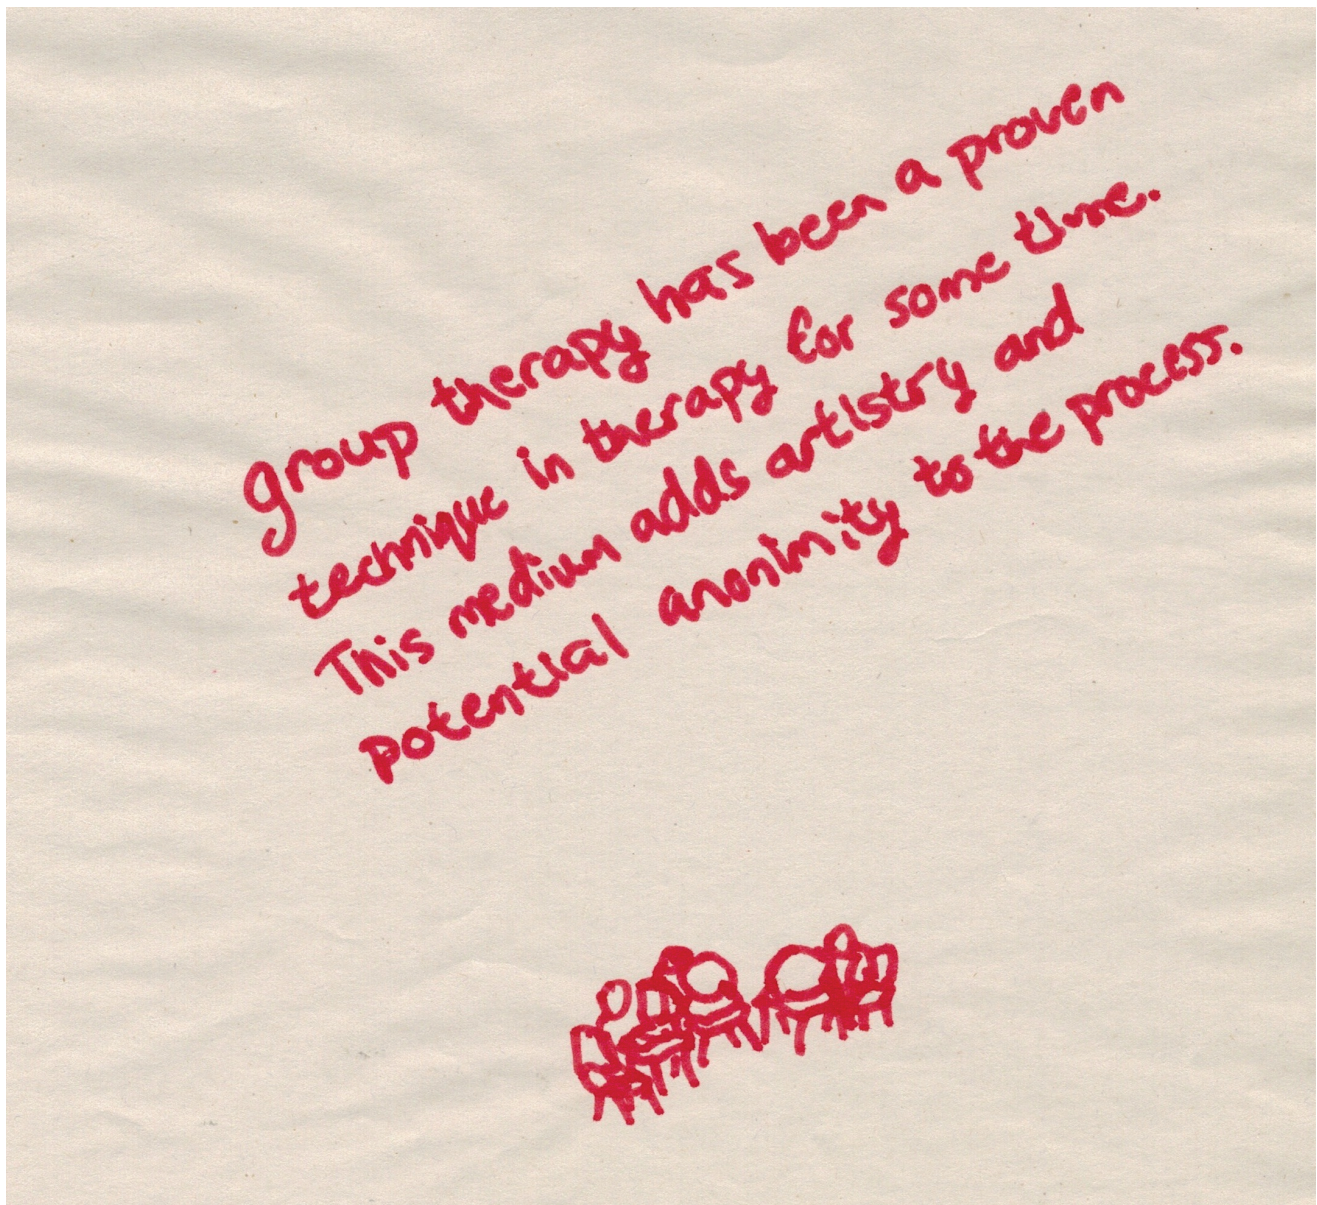 group therapy has been a proven
technique in therapy for some time.
This medium adds artistry and
potential anonimity to the process.